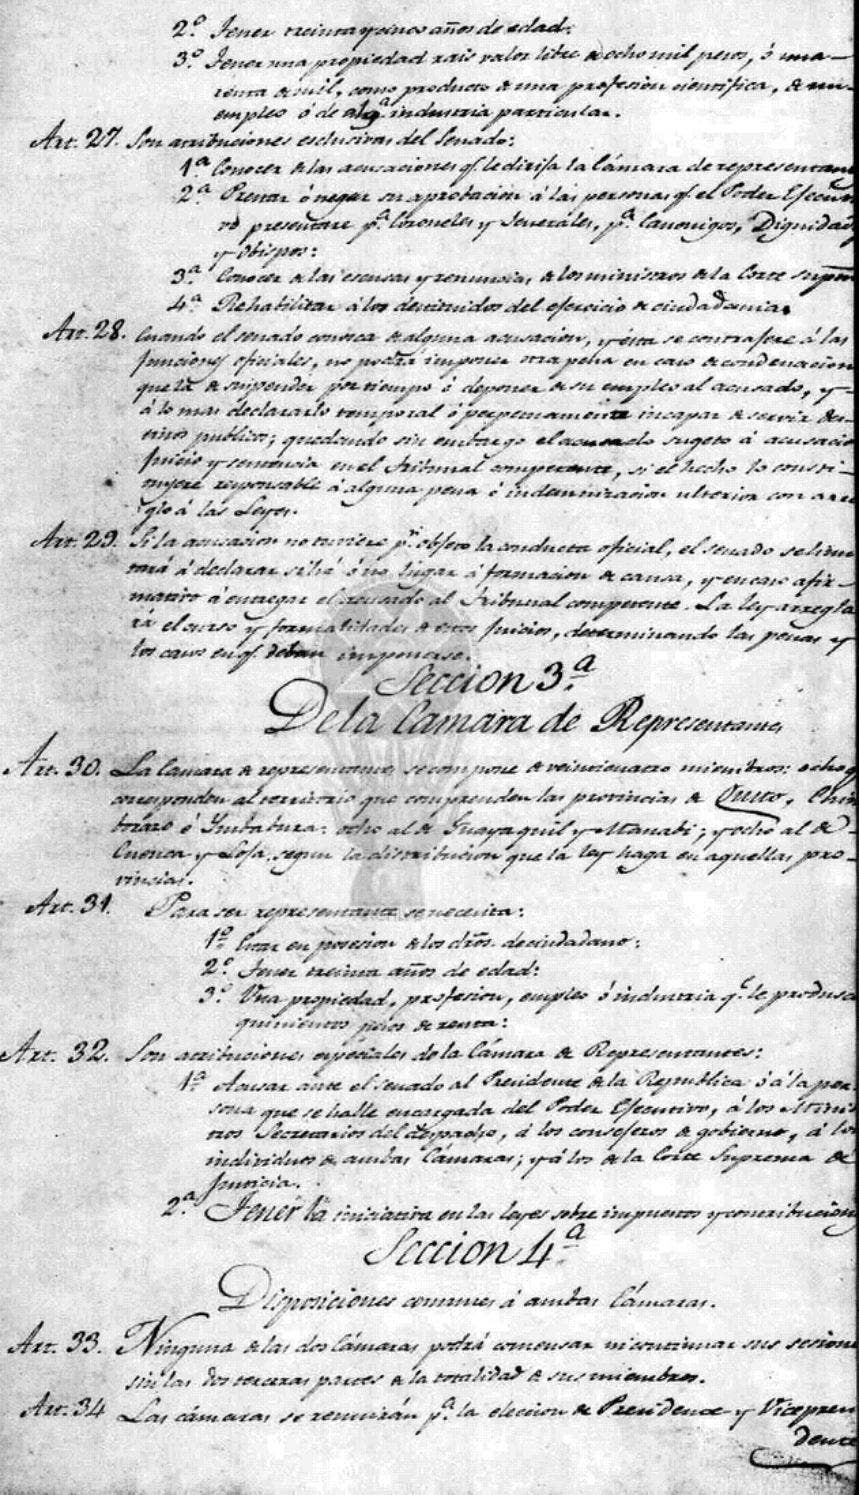 2.º Tener treinta y cinco años de edad:
3.º Tener una propiedad raiz valor libre de ocho mil pesos, ó una
renta de mil, como producto de una profesion cientifica, de un
empleo ó de alg.ª industria particular.
Art. 27. Son atribuciones esclusivas del Senado:
1.ª Conocer de las acusaciones q.e le dirija la Cámara de representan
2.ª Prestar ó negar su aprobacion á las personas q.e el Poder Ejecu
vo presentare p.ª Coroneles y Generales, p.ª Canonigos, Dignidad
y Obispos:
3.ª Conocer de las escusas y renuncias de los ministros de la Corte Suprem
4.ª Rehabilitar á los destituidos del ejercicio de ciudadania.
Art. 28. Cuando el senado conosca de alguna acusacion, y ésta se contrajere á las
funciones oficiales, no podrá imponer otra pena en caso de condenacion
que la de suspender por tiempo ó deponer de su empleo al acusado, y
á lo mas declararlo temporal ó perpetuamente incapaz de servir des-
tinos publicos; quedando sin embargo el acusado sugeto á acusacio
juicio y sentencia en el tribunal competente, si el hecho lo consti-
tuyere responsable á alguna pena ó indemnizacion ulterior con arre
glo á las Leyes.
Art. 29. Si la acusacion no tuviere p.r objeto la conducta oficial, el senado se limi
tará á declarar si há ó no lugar á formacion de causa, y en caso afir-
mativo á entregar el acusado al tribunal competente. La ley arregla
rá el curso y formalidades de estos juicios, determinando las penas y
los casos en q.e deban imponerse.
Seccion 3.ª
De la Camara de Representantes
Art. 30. La Camara de representantes se compone de veinticuatro miembros: ocho q
corresponden al territorio que comprenden las provincias de Quito, Chim
borazo é Imbabura: ocho al de Guayaquil y Manabi; y ocho al de
Cuenca y Loja, segun la distribucion que la ley haga en aquellas pro-
vincias.
Art. 31. Para ser representante se necesita:
1.º Estar en posesion de los dros. de ciudadano:
2.º Tener treinta años de edad:
3.º Una propiedad, profesion, empleo ó industria q.e le produsca
quinientos pesos de renta:
Art. 32. Son atribuciones especiales de la Cámara de Representantes:
1.ª Acusar ante el senado al Presidente de la Republica ó á la per
sona que se halle encargada del Poder Ejecutivo, á los Minis
tros Secretarios del despacho, á los consejeros de gobierno, á los
individuos de ambas Cámaras; y á los de la Corte Suprema de
Justicia.
2.ª Tener la iniciativa en las leyes sobre impuestos y contribucion
Seccion 4.ª
Disposiciones comunes á ambas Cámaras.
Art. 33. Ninguna de las dos Cámaras podrá comensar ni continuar sus sesione
sin las dos terceras partes de la totalidad de sus miembros.
Art. 34 Las cámaras se reunirán p.ª la eleccion de Presidente y Vicepresi
dente